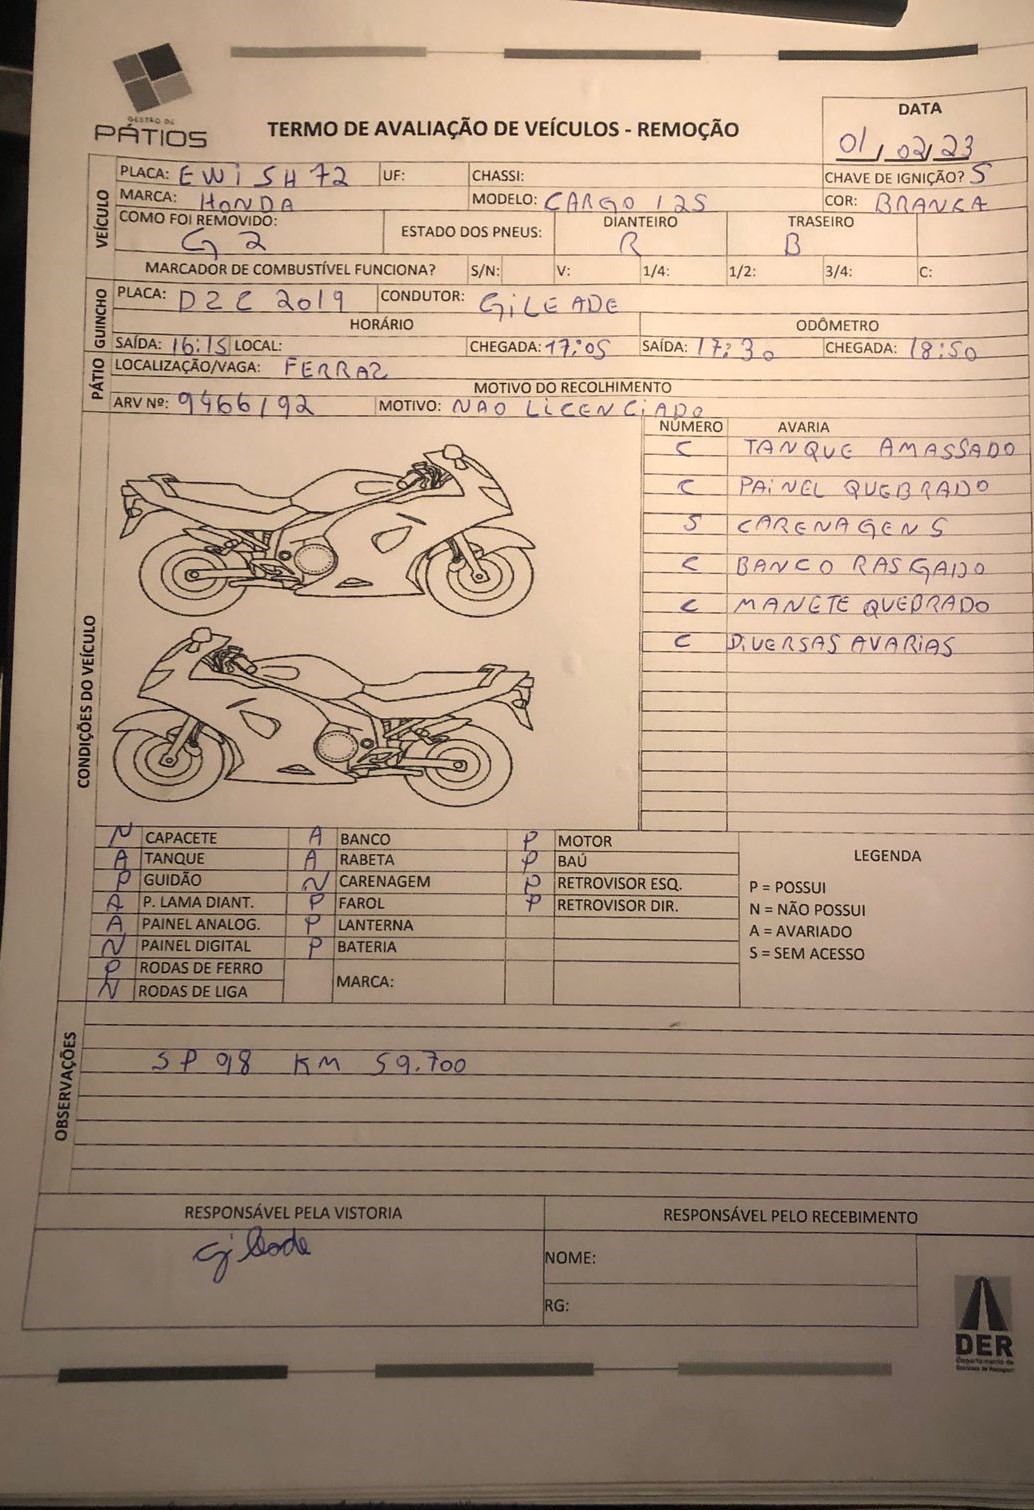 GESTÃO DE
PÁTIOS
TERMO DE AVALIAÇÃO DE VEÍCULOS - REMOÇÃO
DATA
01/02/23
VEÍCULO
PLACA: EWI5H72 UF: CHASSI: CHAVE DE IGNIÇÃO? S
MARCA: HONDA MODELO: CARGO 125 COR: BRANCA
COMO FOI REMOVIDO: G2 ESTADO DOS PNEUS: DIANTEIRO R TRASEIRO B
MARCADOR DE COMBUSTÍVEL FUNCIONA? S/N: V: 1/4: 1/2: 3/4: C:
GUINCHO
PLACA: DZC 2019 CONDUTOR: GILEADE
HORÁRIO ODÔMETRO
SAÍDA: 16:15 LOCAL: CHEGADA: 17:05 SAÍDA: 17:30 CHEGADA: 18:50
PÁTIO
LOCALIZAÇÃO/VAGA: FERRAZ
MOTIVO DO RECOLHIMENTO
ARV Nº: 9466192 MOTIVO: NAO LICENCIADO
CONDIÇÕES DO VEÍCULO
NÚMERO AVARIA
C TANQUE AMASSADO
C PAINEL QUEBRADO
S CARENAGENS
C BANCO RASGADO
C MANETE QUEBRADO
C DIVERSAS AVARIAS
N CAPACETE A BANCO P MOTOR
A TANQUE A RABETA P BAÚ
P GUIDÃO N CARENAGEM P RETROVISOR ESQ.
A P. LAMA DIANT. P FAROL P RETROVISOR DIR.
A PAINEL ANALOG. P LANTERNA
N PAINEL DIGITAL P BATERIA
P RODAS DE FERRO
N RODAS DE LIGA MARCA:
LEGENDA
P = POSSUI
N = NÃO POSSUI
A = AVARIADO
S = SEM ACESSO
OBSERVAÇÕES
SP 98 KM 59.700
RESPONSÁVEL PELA VISTORIA RESPONSÁVEL PELO RECEBIMENTO
Gileade
NOME:
RG:
DER
Departamento de
Estradas de Rodagem